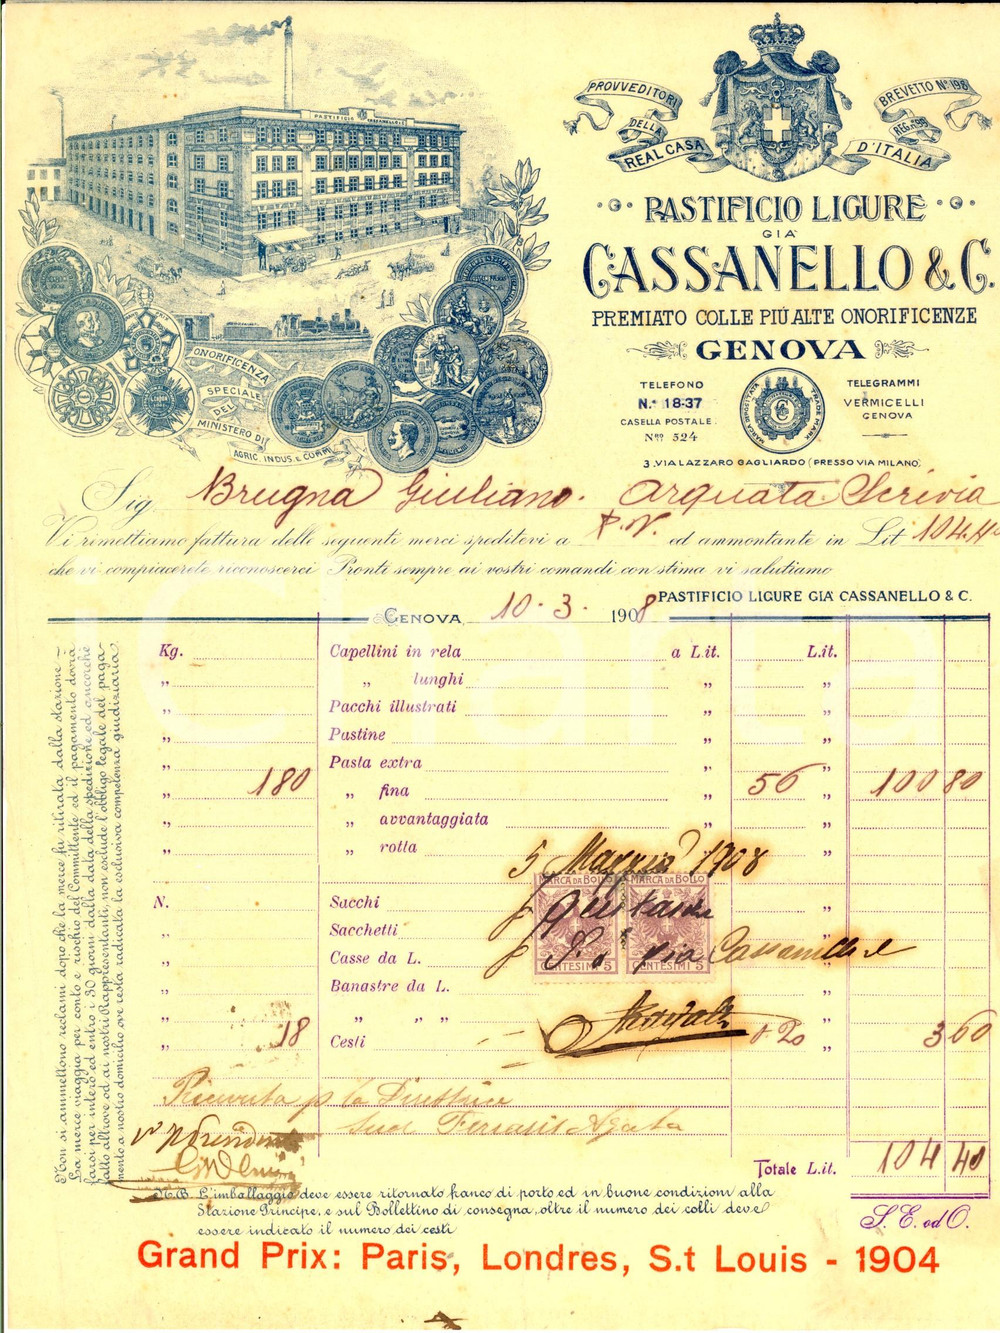 PASTIFICIO CASSANELLO & C.
PROVVEDITORI
DELLA
REAL CASA
BREVETTO Nº 198
REG. 99
D'ITALIA
PASTIFICIO LIGURE
GIÀ
CASSANELLO & C.
PREMIATO COLLE PIÙ ALTE ONORIFICENZE
GENOVA
TELEFONO
N.º 18-37
CASELLA POSTALE.
Nro 524
MARCA DEPOSITATA
TRADE MARK
TELEGRAMMI
VERMICELLI
GENOVA
3. VIA LAZZARO GAGLIARDO (PRESSO VIA MILANO)
ONORIFICENZA
SPECIALE
DEL
MINISTERO DI
AGRIC. INDUS. E COMM.
Sig. Brugna Giuliano. Arquata Scrivia
Vi rimettiamo fattura delle seguenti merci speditevi a P.V. ed ammontante in Lit 104.40
che vi compiacerete riconoscerci Pronti sempre ai vostri comandi con stima vi salutiamo
PASTIFICIO LIGURE GIÀ CASSANELLO & C.
GENOVA, 10.3. 1908
Kg. Capellini in rela a L.it. L.it.
„ „ lunghi „ „
„ Pacchi illustrati „ „
„ Pastine „ „
„ Pasta extra „ „
„ 180 „ fina „ 56 „ 100 80
„ „ avvantaggiata „ „
„ „ rotta „ „
5 Maggio 1908
MARCA DA BOLLO MARCA DA BOLLO
N. Sacchi
„ Sacchetti
„ Casse da L. „
CENTESIMI 5 CENTESIMI 5
P. già Cassanello
„ Banastre da L. „
„ „ „ „ „
„ 18 Cesti 0.20 „ 3 60
Ricevuta p la Direttrice
Totale L.it. 104 40
S. E. od O.
Non si ammettono reclami dopo che la merce fu ritirata dalla stazione —
La merce viaggia per conto e rischio del Committente ed il pagamento dovrà
farsi per intero ed entro i 30 giorni dalla data della spedizione ed ancorchè
fatto altrove od ai nostri Rappresentanti, non esclude l'obbligo legale del paga-
mento a nostro domicilio ove resta radicata la esclusiva competenza giudiziaria
N.B. L'imballaggio deve essere ritornato franco di porto ed in buone condizioni alla
Stazione Principe, e sul Bollettino di consegna, oltre il numero dei colli deve
essere indicato il numero dei cesti
Grand Prix: Paris, Londres, S.t Louis - 1904